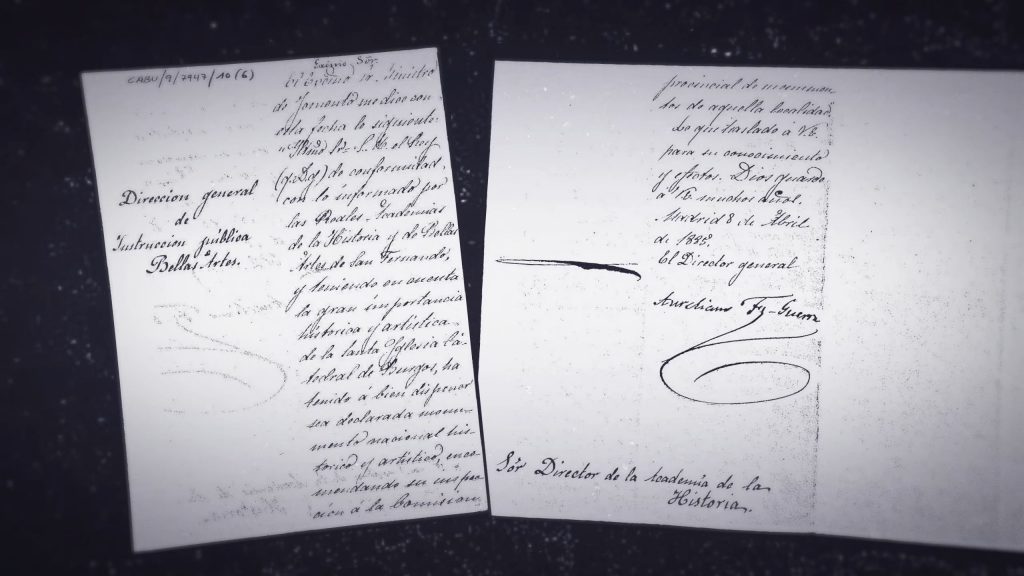 CABU/9/7947/10(6)
Excmo. Sór.
El Excmo. Sr. Ministro
de Fomento me dice con
esta fecha lo siguiente:
S. M. el Rey
(q. D. g.) de conformidad,
con lo informado por
las Reales Academias
de la Historia y de Bellas
Artes de San Fernando,
y teniendo en cuenta
la gran importancia
histórica y artística
de la Santa Iglesia Ca-
tedral de Burgos, ha
tenido á bien disponer
sea declarada monu-
mento nacional his-
tórico y artístico, enco-
mendando su inspec-
ción á la Comisión
Direccion general
de
Instruccion pública
Bellas Artes.
provincial de monumen-
tos de aquella localidad.
Lo que traslado á V.E.
para su conocimiento
y efectos. Dios guarde
á V.E. muchos años.
Madrid 8 de Abril
de 1885.
El Director general
Aureliano Fz-Guerra
Sór Director de la Academia de la
Historia.